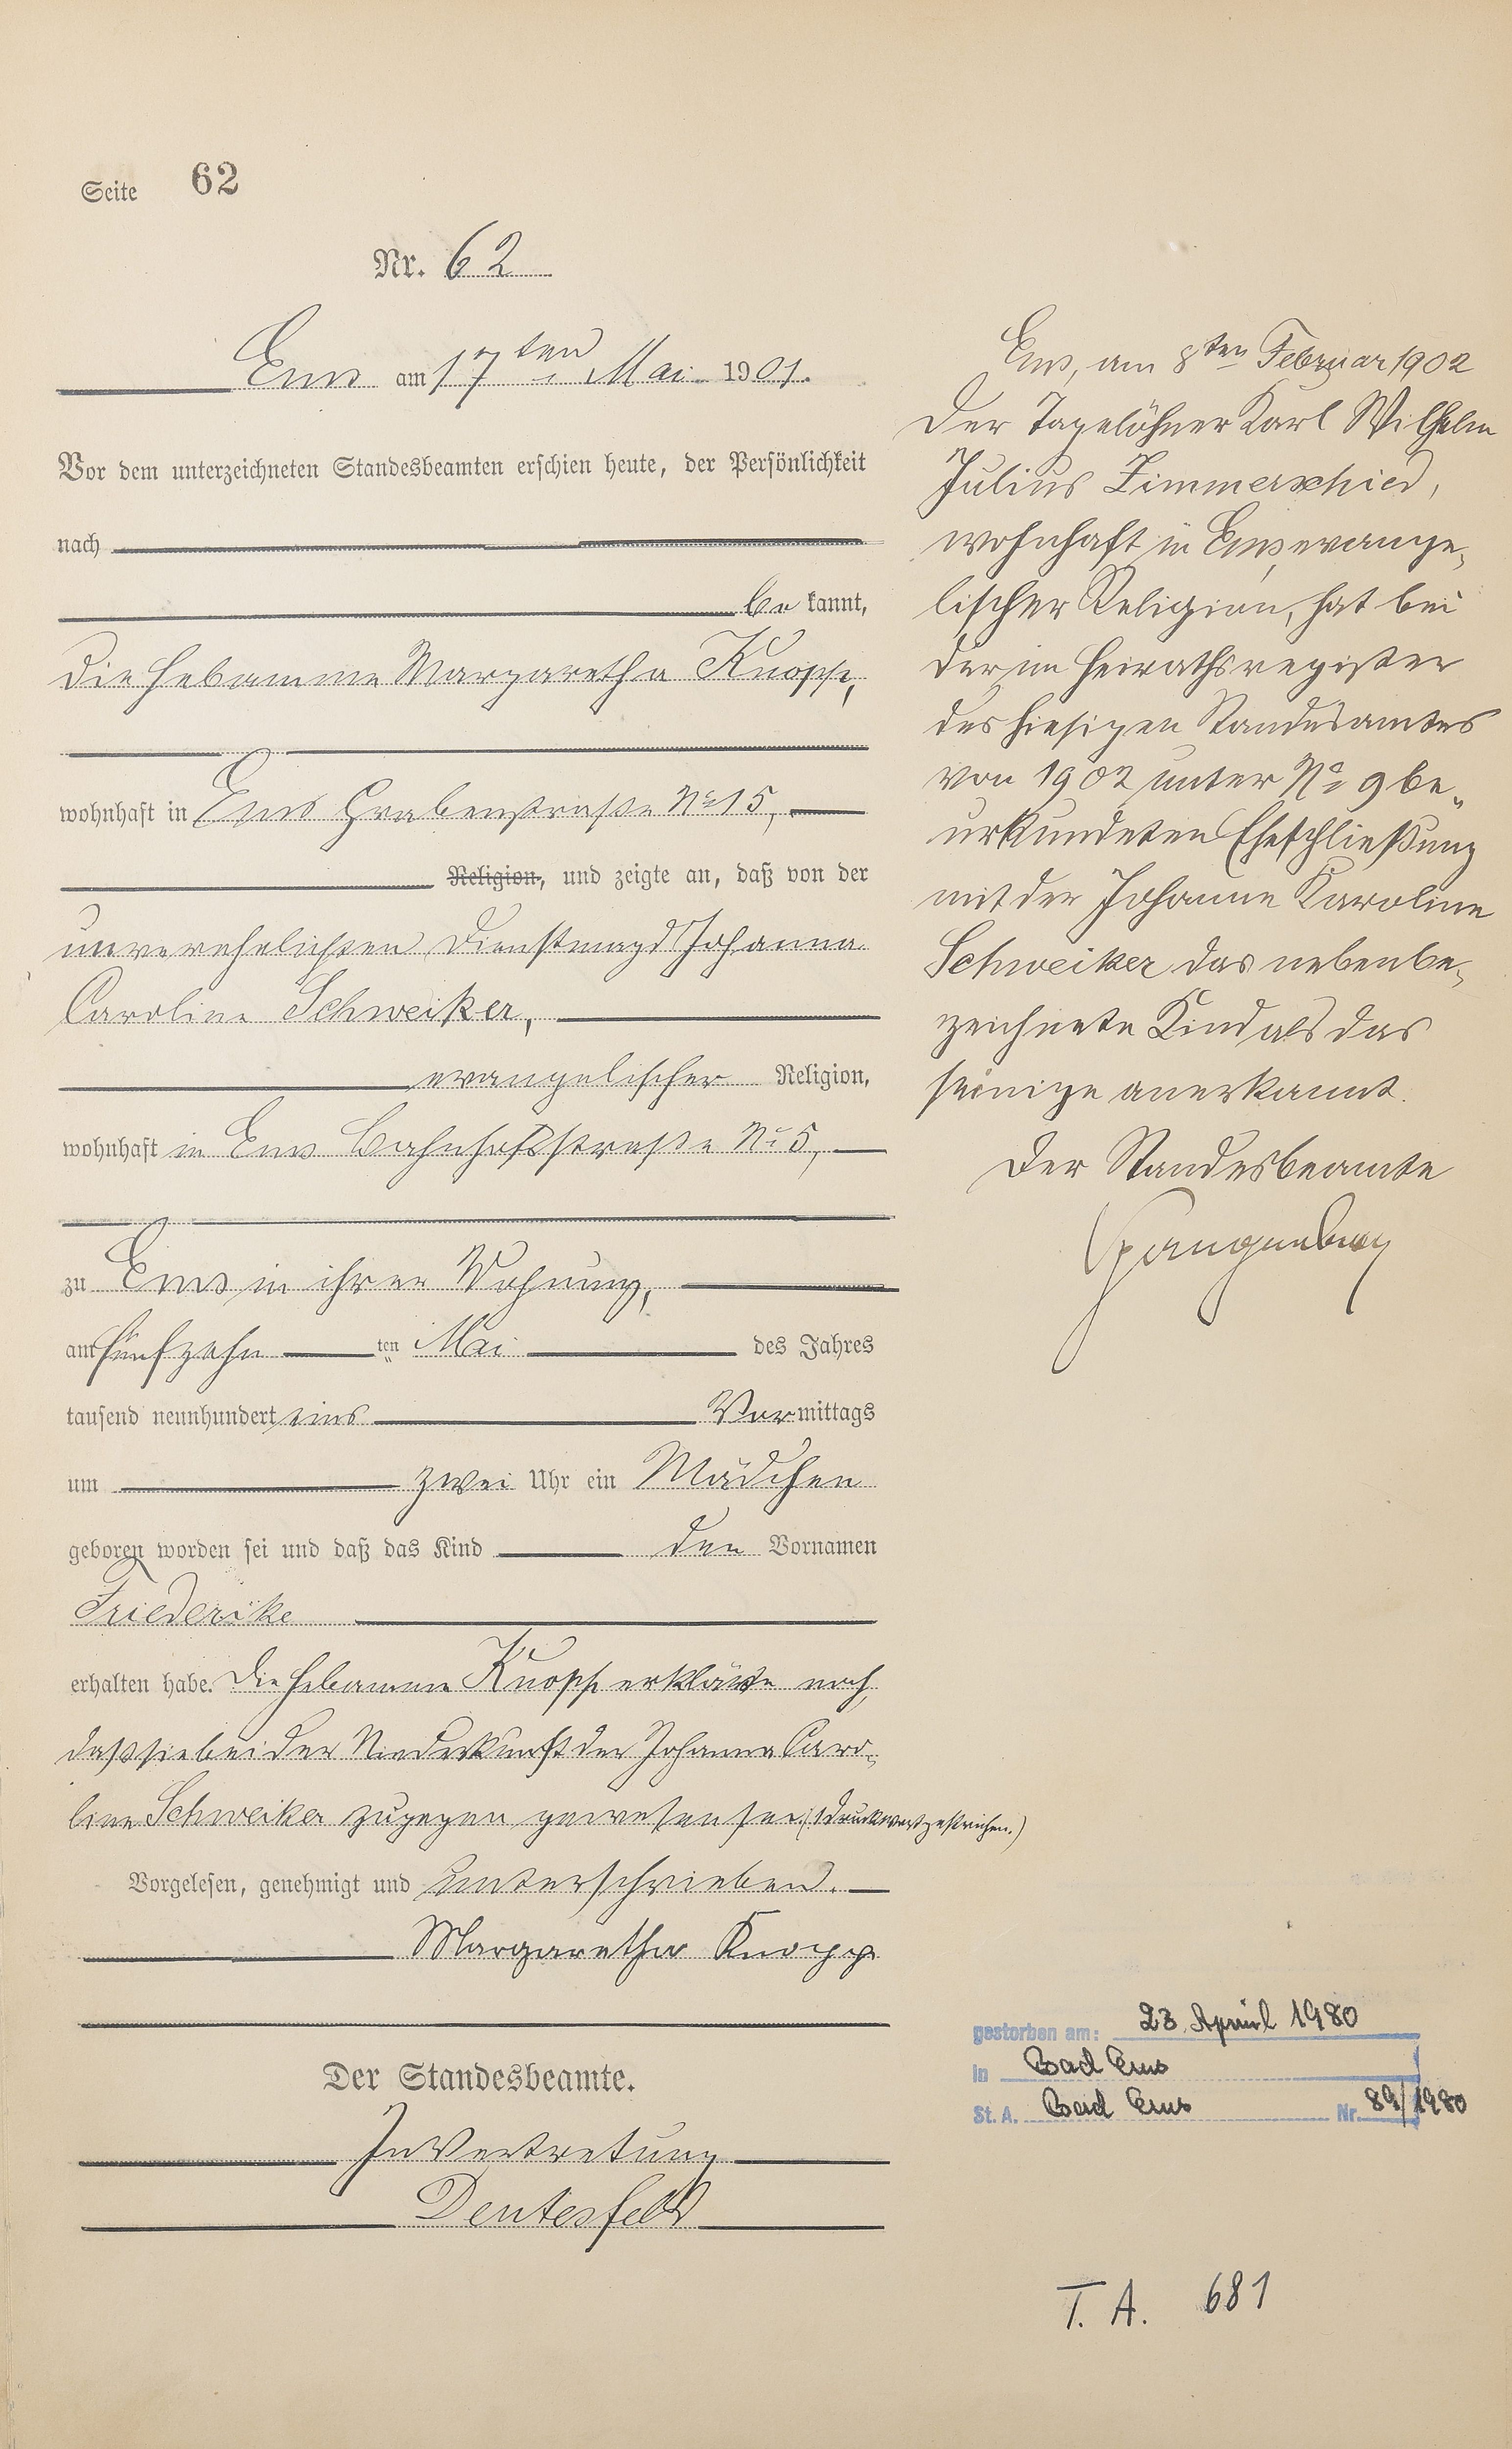 Seite 62
Nr. 62
Ems am 17ten Mai 1901.
Vor dem unterzeichneten Standesbeamten erschien heute, der Persönlichkeit
nach
be kannt,
die Hebamme Margaretha Knopp,
wohnhaft in Ems Grabenstraße No 15,
Religion, und zeigte an, daß von der
unverehelichten Dienstmagd Johanna
Caroline Schweiker,
evangelischer Religion,
wohnhaft in Ems Bahnhofsstraße No 5,
zu Ems in ihrer Wohnung,
am fünfzehn ten Mai des Jahres
tausend neunhundert eins Vormittags
um zwei Uhr ein Mädchen
geboren worden sei und daß das Kind den Vornamen
Friederike
erhalten habe. Die Hebamme Knopp erklärte noch,
daß sie bei der Niederkunft der Johanna Caro-
line Schweiker zugegen gewesen sei. (1 Druckwort gestrichen.)
Vorgelesen, genehmigt und unterschrieben.
Margaretha Knopp
Der Standesbeamte.
In Vertretung
Dentesfeld
Ems, am 8ten Februar 1902
Der Tagelöhner Karl Wilhelm
Julius Zimmerschied,
wohnhaft in Ems, evange-
lischer Religion, hat bei
der im Heirathsregister
des hiesigen Standesamtes
von 1902 unter No 9 be-
urkundeten Eheschließung
mit der Johanne Karoline
Schweiker das nebenbe-
zeichnete Kind als das
seinige anerkannt.
Der Standesbeamte
Spangenberg
gestorben am: 23. April 1980
in Bad Ems
St. A. Bad Ems Nr. 89/1980
T. A. 681